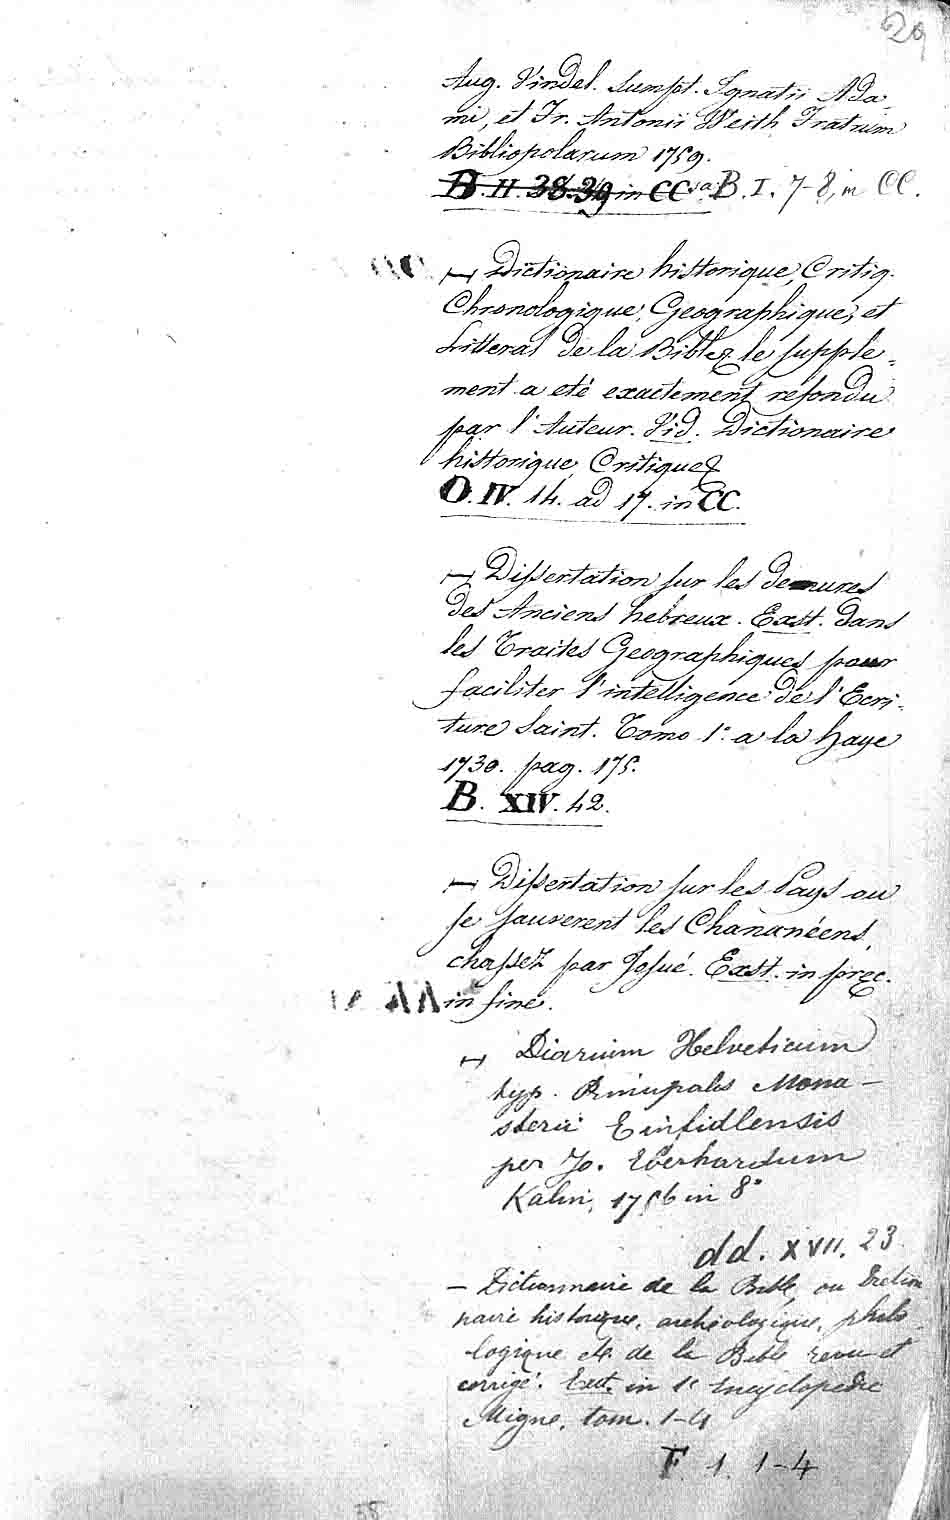 29
Aug. Vindel. Sumpt. Ignatii Ada-
mi, et Fr. Antonii Weith Fratrum
Bibliopolarum 1759.
B. II. 38.39 in CC B. I. 7-8, in CC.
— Dictionaire historique, Critiq.
Chronologique, Geographique, et
Litteral de la Bible & le supple=
ment a eté exactement refondu
par l'Auteur. Vid. Dictionaire
historique Critique &
O. IV. 14. ad 17. in CC.
— Dissertation sur les demures
des Anciens hebreux. Exst. dans
les Traites Geographiques pour
faciliter l'intelligence de l'Ecri-
ture Saint. Tomo 1º a la haye
1730. pag. 175.
B. XIV. 42.
— Dissertation sur les Pays ou
se sauverent les Chananéens,
chassez par Josué. Exst. in præc.
in fine.
— Diarium Helveticum
typ. Principalis Mona-
sterii Einsidlensis
per Jo. Eberhardum
Kalin, 1756 in 8º
dd. XVII. 23.
— Dictionnaire de la Bible, ou Diction
naire historique, archéologique, philo-
logique & de la Bible revu et
corrigé. Exst. in 1e Encyclopedie
Migne, tom. 1-4
F. 1. 1-4